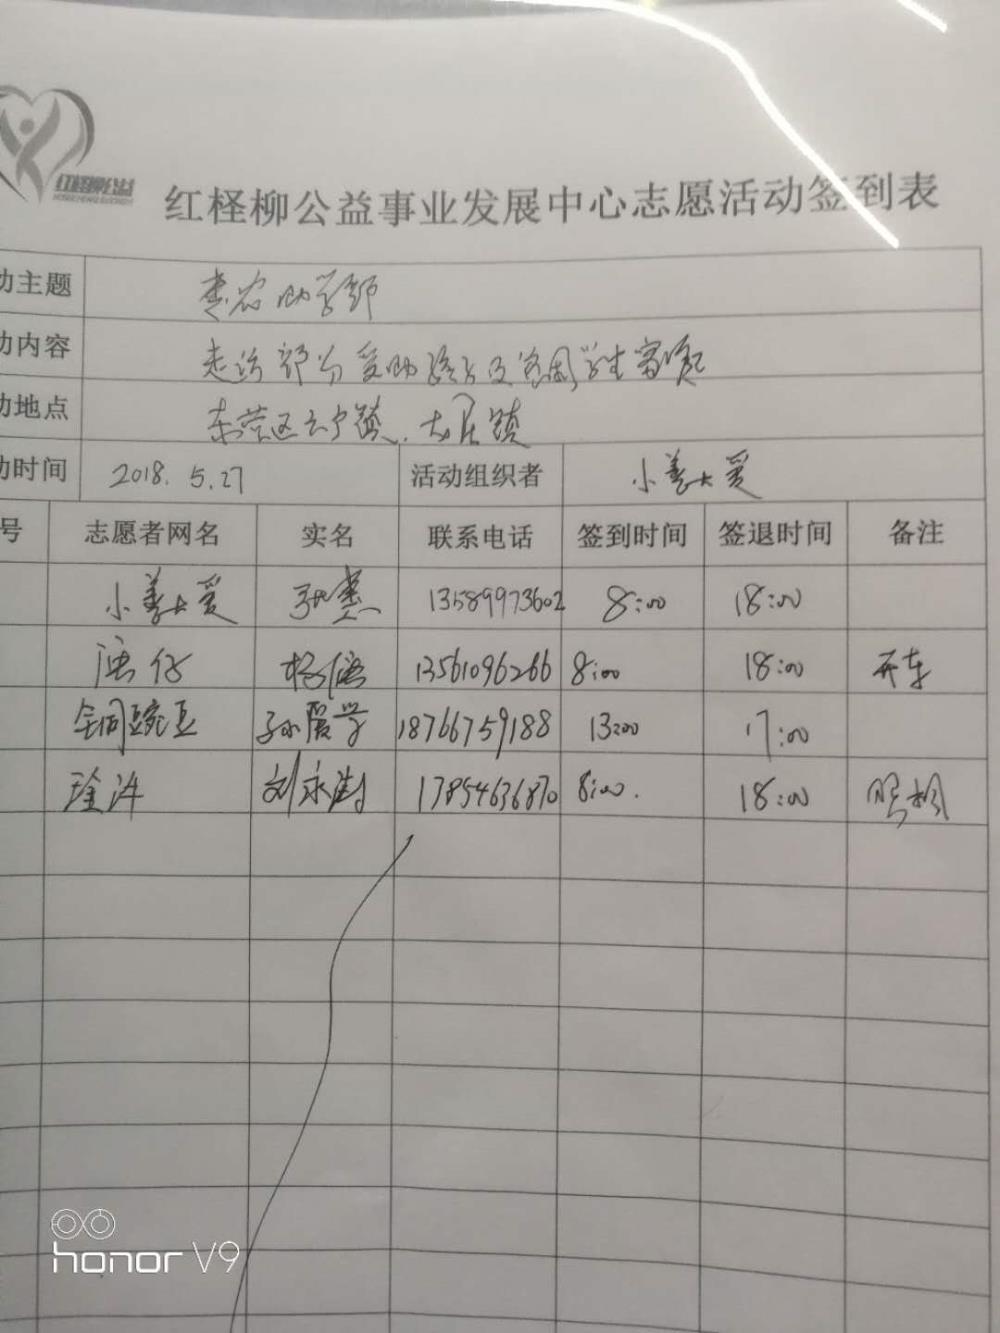 红柽柳公益
红柽柳公益事业发展中心志愿活动签到表
动主题
助学部
动内容 走访部分受助孩子及贫困学生家庭
动地点 东营区六户镇、大居镇
动时间 2018.5.27 活动组织者 小善大爱
号 志愿者网名 实名 联系电话 签到时间 签退时间 备注
小善大爱 13589973602 8:00 18:00
杨 13561096266 8:00 18:00 开车
铜豌豆 孙震学 18766759188 13:00 17:00
刘永 17854636870 8:00. 18:00 照相
honor V9